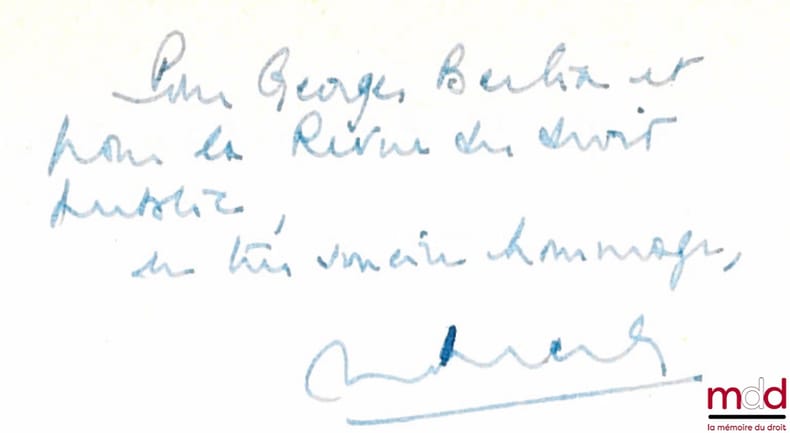 Pour Georges Berlia et
pour la Revue du droit
public,
en très sincère hommage,
mdd
la mémoire du droit